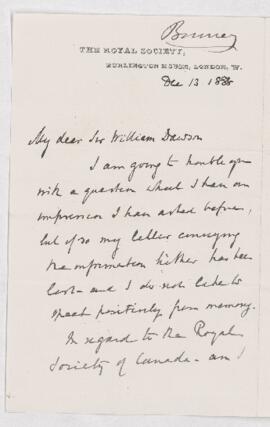 Bonney
THE ROYAL SOCIETY,
BURLINGTON HOUSE, LONDON, W.
Dec 13 188
My dear Sir William Dawson
I am going to trouble you
with a question which I have an
impression I have asked before,
but if so my letter conveying
the information hither has been
lost - and I do not like to
speak positively from memory.
In regard to the Royal
Society of Canada - am I